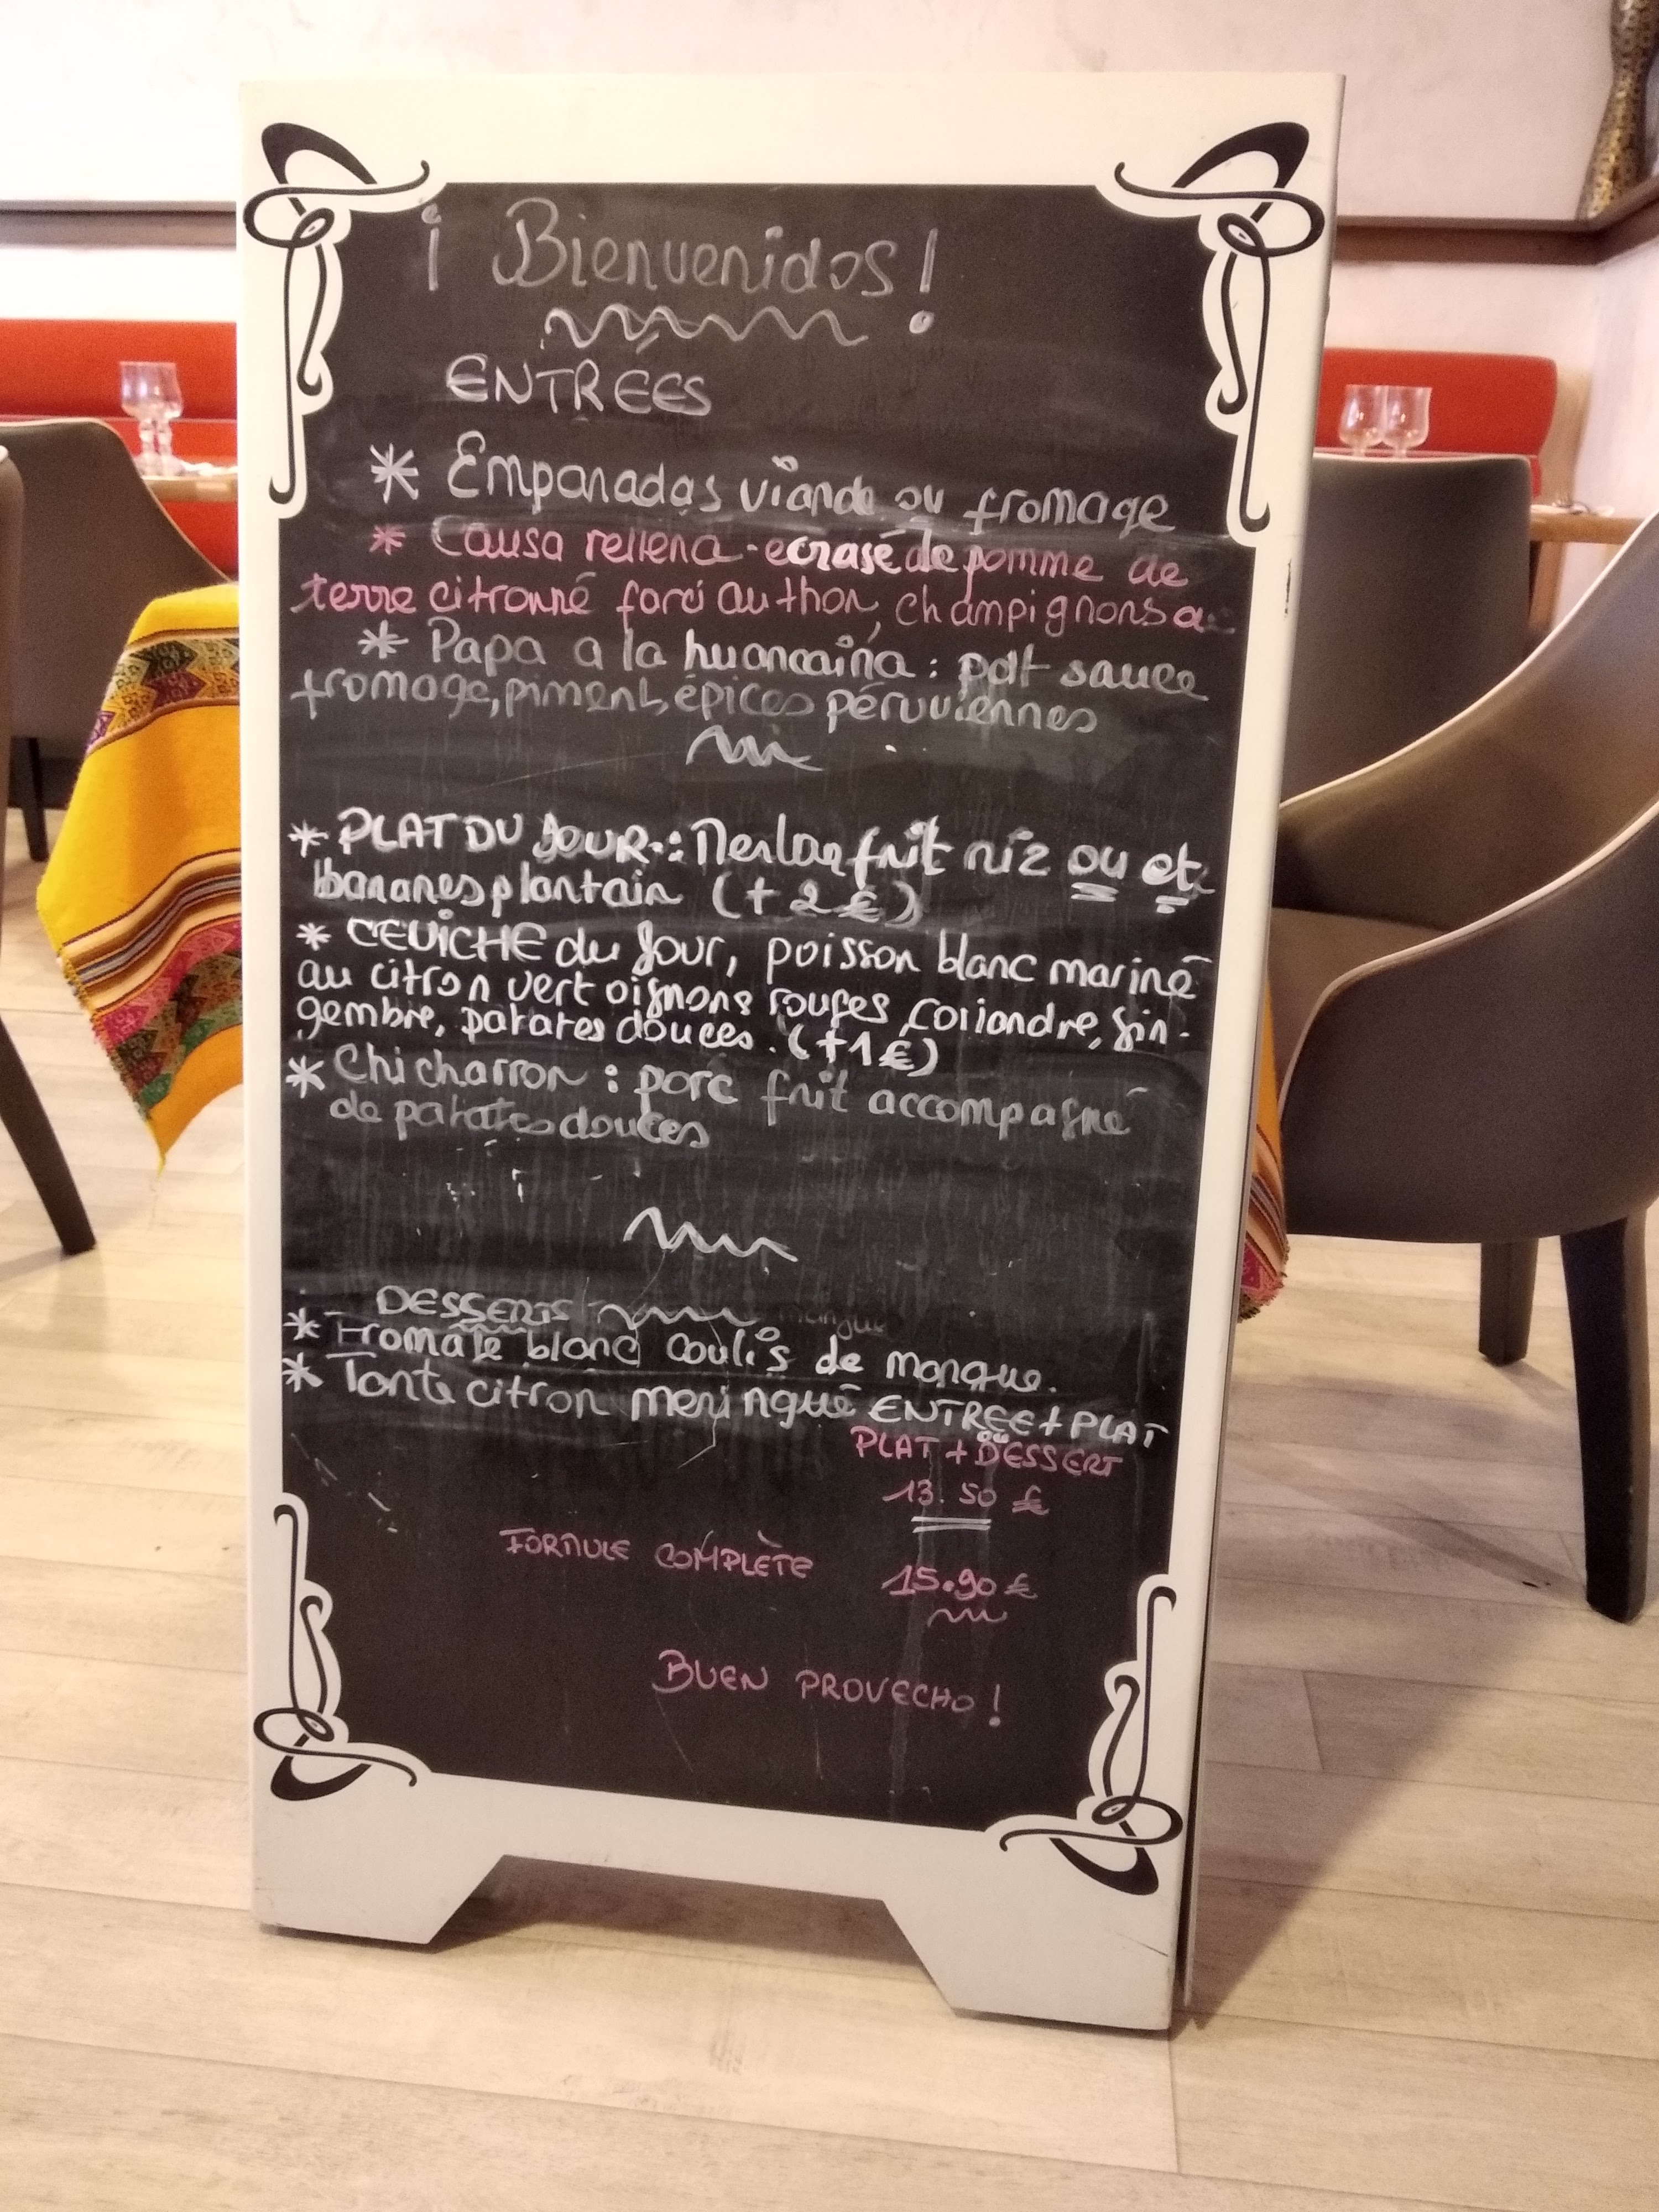 ¡ Bienvenidos !
ENTRÉES
* Empanadas viande ou fromage
* Causa rellena - ecrasé de pomme de
terre citronné farci au thon, champignons
* Papa a la huancaina : pdt sauce
fromage, piment, épices péruviennes
* PLAT DU JOUR : Merlan frit riz ou et
bananes plantain (+ 2 €)
* CEVICHE du Jour, poisson blanc mariné
au citron vert oignons rouges, coriandre, gin-
gembre, patates douces. (+1 €)
* Chicharron : porc frit accompagné
de patates douces
DESSERTS mangue
* Fromage blanc coulis de mangue.
* Tarte citron meringué ENTREE + PLAT
ou
PLAT + DESSERT
13.50 €
FORMULE COMPLÈTE 15.90 €
BUEN PROVECHO !